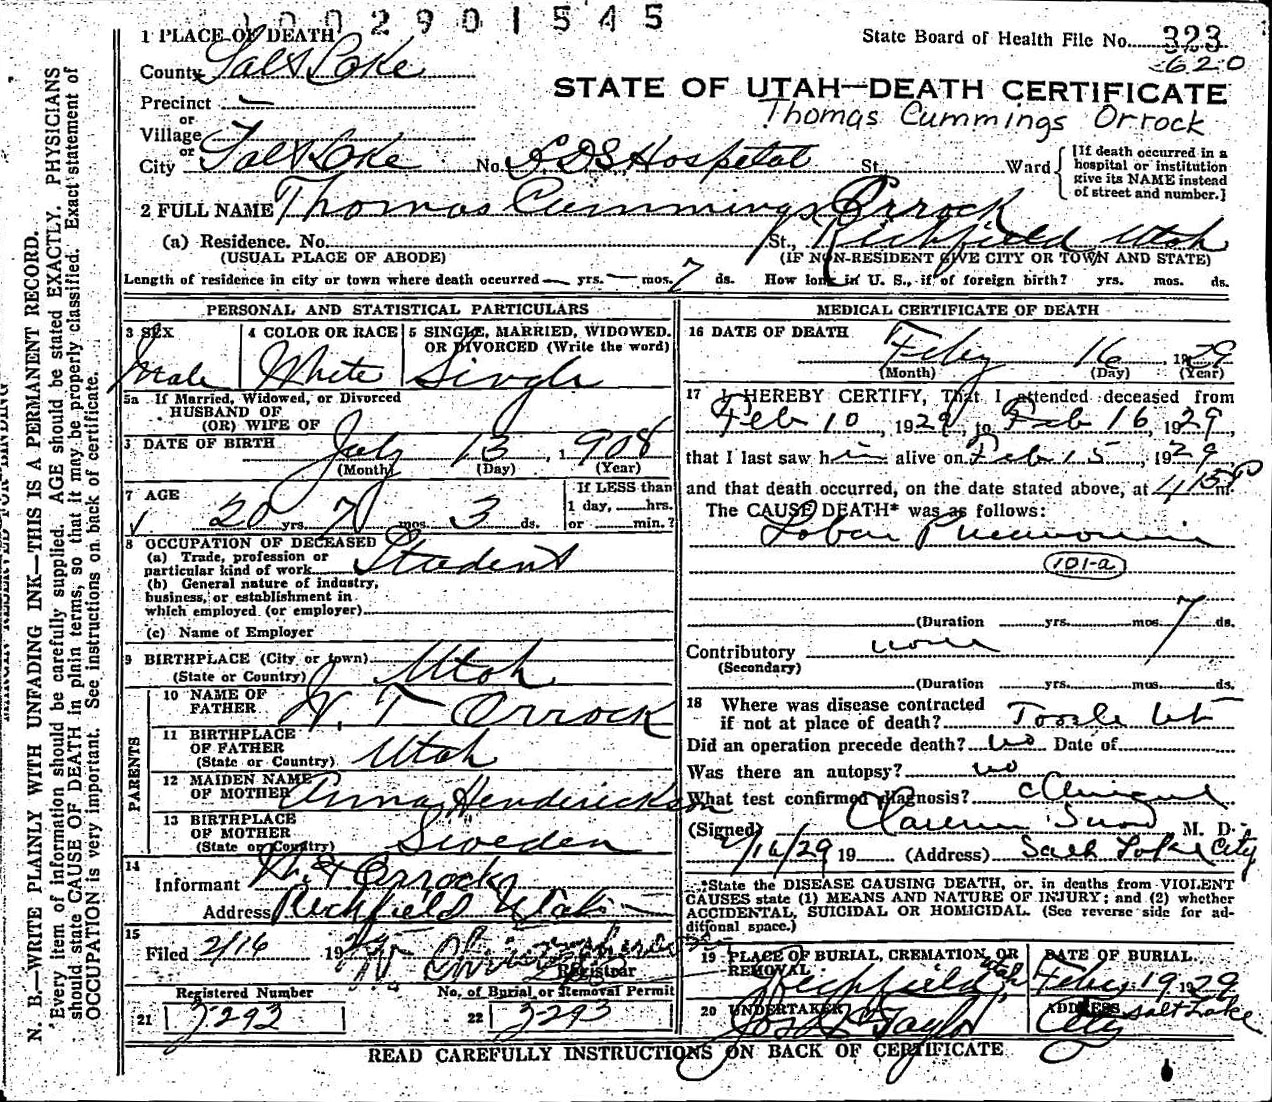 1002901545
1 PLACE OF DEATH
State Board of Health File No. 323
620
County Salt Lake
STATE OF UTAH—DEATH CERTIFICATE
Thomas Cummings Orrock
Precinct —
or
Village
or
City Salt Lake No. LDS Hospital St. Ward
[If death occurred in a hospital or institution give its NAME instead of street and number.]
2 FULL NAME Thomas Cummings Orrock
(a) Residence. No. St., Richfield Utah
(USUAL PLACE OF ABODE) (IF NON-RESIDENT GIVE CITY OR TOWN AND STATE)
Length of residence in city or town where death occurred — yrs. — mos. 7 ds. How long in U. S., if of foreign birth? yrs. mos. ds.
PERSONAL AND STATISTICAL PARTICULARS
3 SEX
Male
4 COLOR OR RACE
White
5 SINGLE, MARRIED, WIDOWED, OR DIVORCED (Write the word)
Single
5a If Married, Widowed, or Divorced
HUSBAND OF
(OR) WIFE OF
DATE OF BIRTH July 13, 1908
(Month) (Day) (Year)
7 AGE
20 yrs. 7 mos. 3 ds.
If LESS than
1 day, hrs.
or min.?
8 OCCUPATION OF DECEASED
(a) Trade, profession or
particular kind of work Student
(b) General nature of industry,
business, or establishment in
which employed (or employer)
(c) Name of Employer
9 BIRTHPLACE (City or town)
(State or Country) Utah
PARENTS
10 NAME OF
FATHER W. T Orrock
11 BIRTHPLACE
OF FATHER
(State or Country) Utah
12 MAIDEN NAME
OF MOTHER Anna Hendericksen
13 BIRTHPLACE
OF MOTHER
(State or Country) Sweden
14
Informant Orrock
Address Richfield Utah
15
Filed 2/16 19
Registrar
Registered Number No. of Burial or Removal Permit
21 3293 22 3293
MEDICAL CERTIFICATE OF DEATH
16 DATE OF DEATH
Feby 16 1929
(Month) (Day) (Year)
17 I HEREBY CERTIFY, That I attended deceased from
Feb 10, 1929, to Feb 16, 1929,
that I last saw him alive on Feb 15, 1929
and that death occurred, on the date stated above, at 4/15P m.
The CAUSE DEATH* was as follows:
Lobar Pneumonia
101-a
(Duration yrs. mos. 7 ds.
Contributory none
(Secondary)
(Duration yrs. mos. ds.
18 Where was disease contracted
if not at place of death? Tooele Ut
Did an operation precede death? no Date of
Was there an autopsy? no
What test confirmed diagnosis? Clinical
(Signed) Clarence Snow M. D.
2/16/29 19 (Address) Salt Lake City
*State the DISEASE CAUSING DEATH, or, in deaths from VIOLENT
CAUSES state (1) MEANS AND NATURE OF INJURY; and (2) whether
ACCIDENTAL, SUICIDAL OR HOMICIDAL. (See reverse side for ad-
ditional space.)
19 PLACE OF BURIAL, CREMATION, OR
REMOVAL
Richfield Utah
DATE OF BURIAL
Feby 19 1929
20 UNDERTAKER
Taylor
ADDRESS Salt Lake
City
READ CAREFULLY INSTRUCTIONS ON BACK OF CERTIFICATE
N. B.—WRITE PLAINLY WITH UNFADING INK—THIS IS A PERMANENT RECORD.
Every item of information should be carefully supplied. AGE should be stated EXACTLY. PHYSICIANS
should state CAUSE OF DEATH in plain terms, so that it may be properly classified. Exact statement of
OCCUPATION is very important. See instructions on back of certificate.